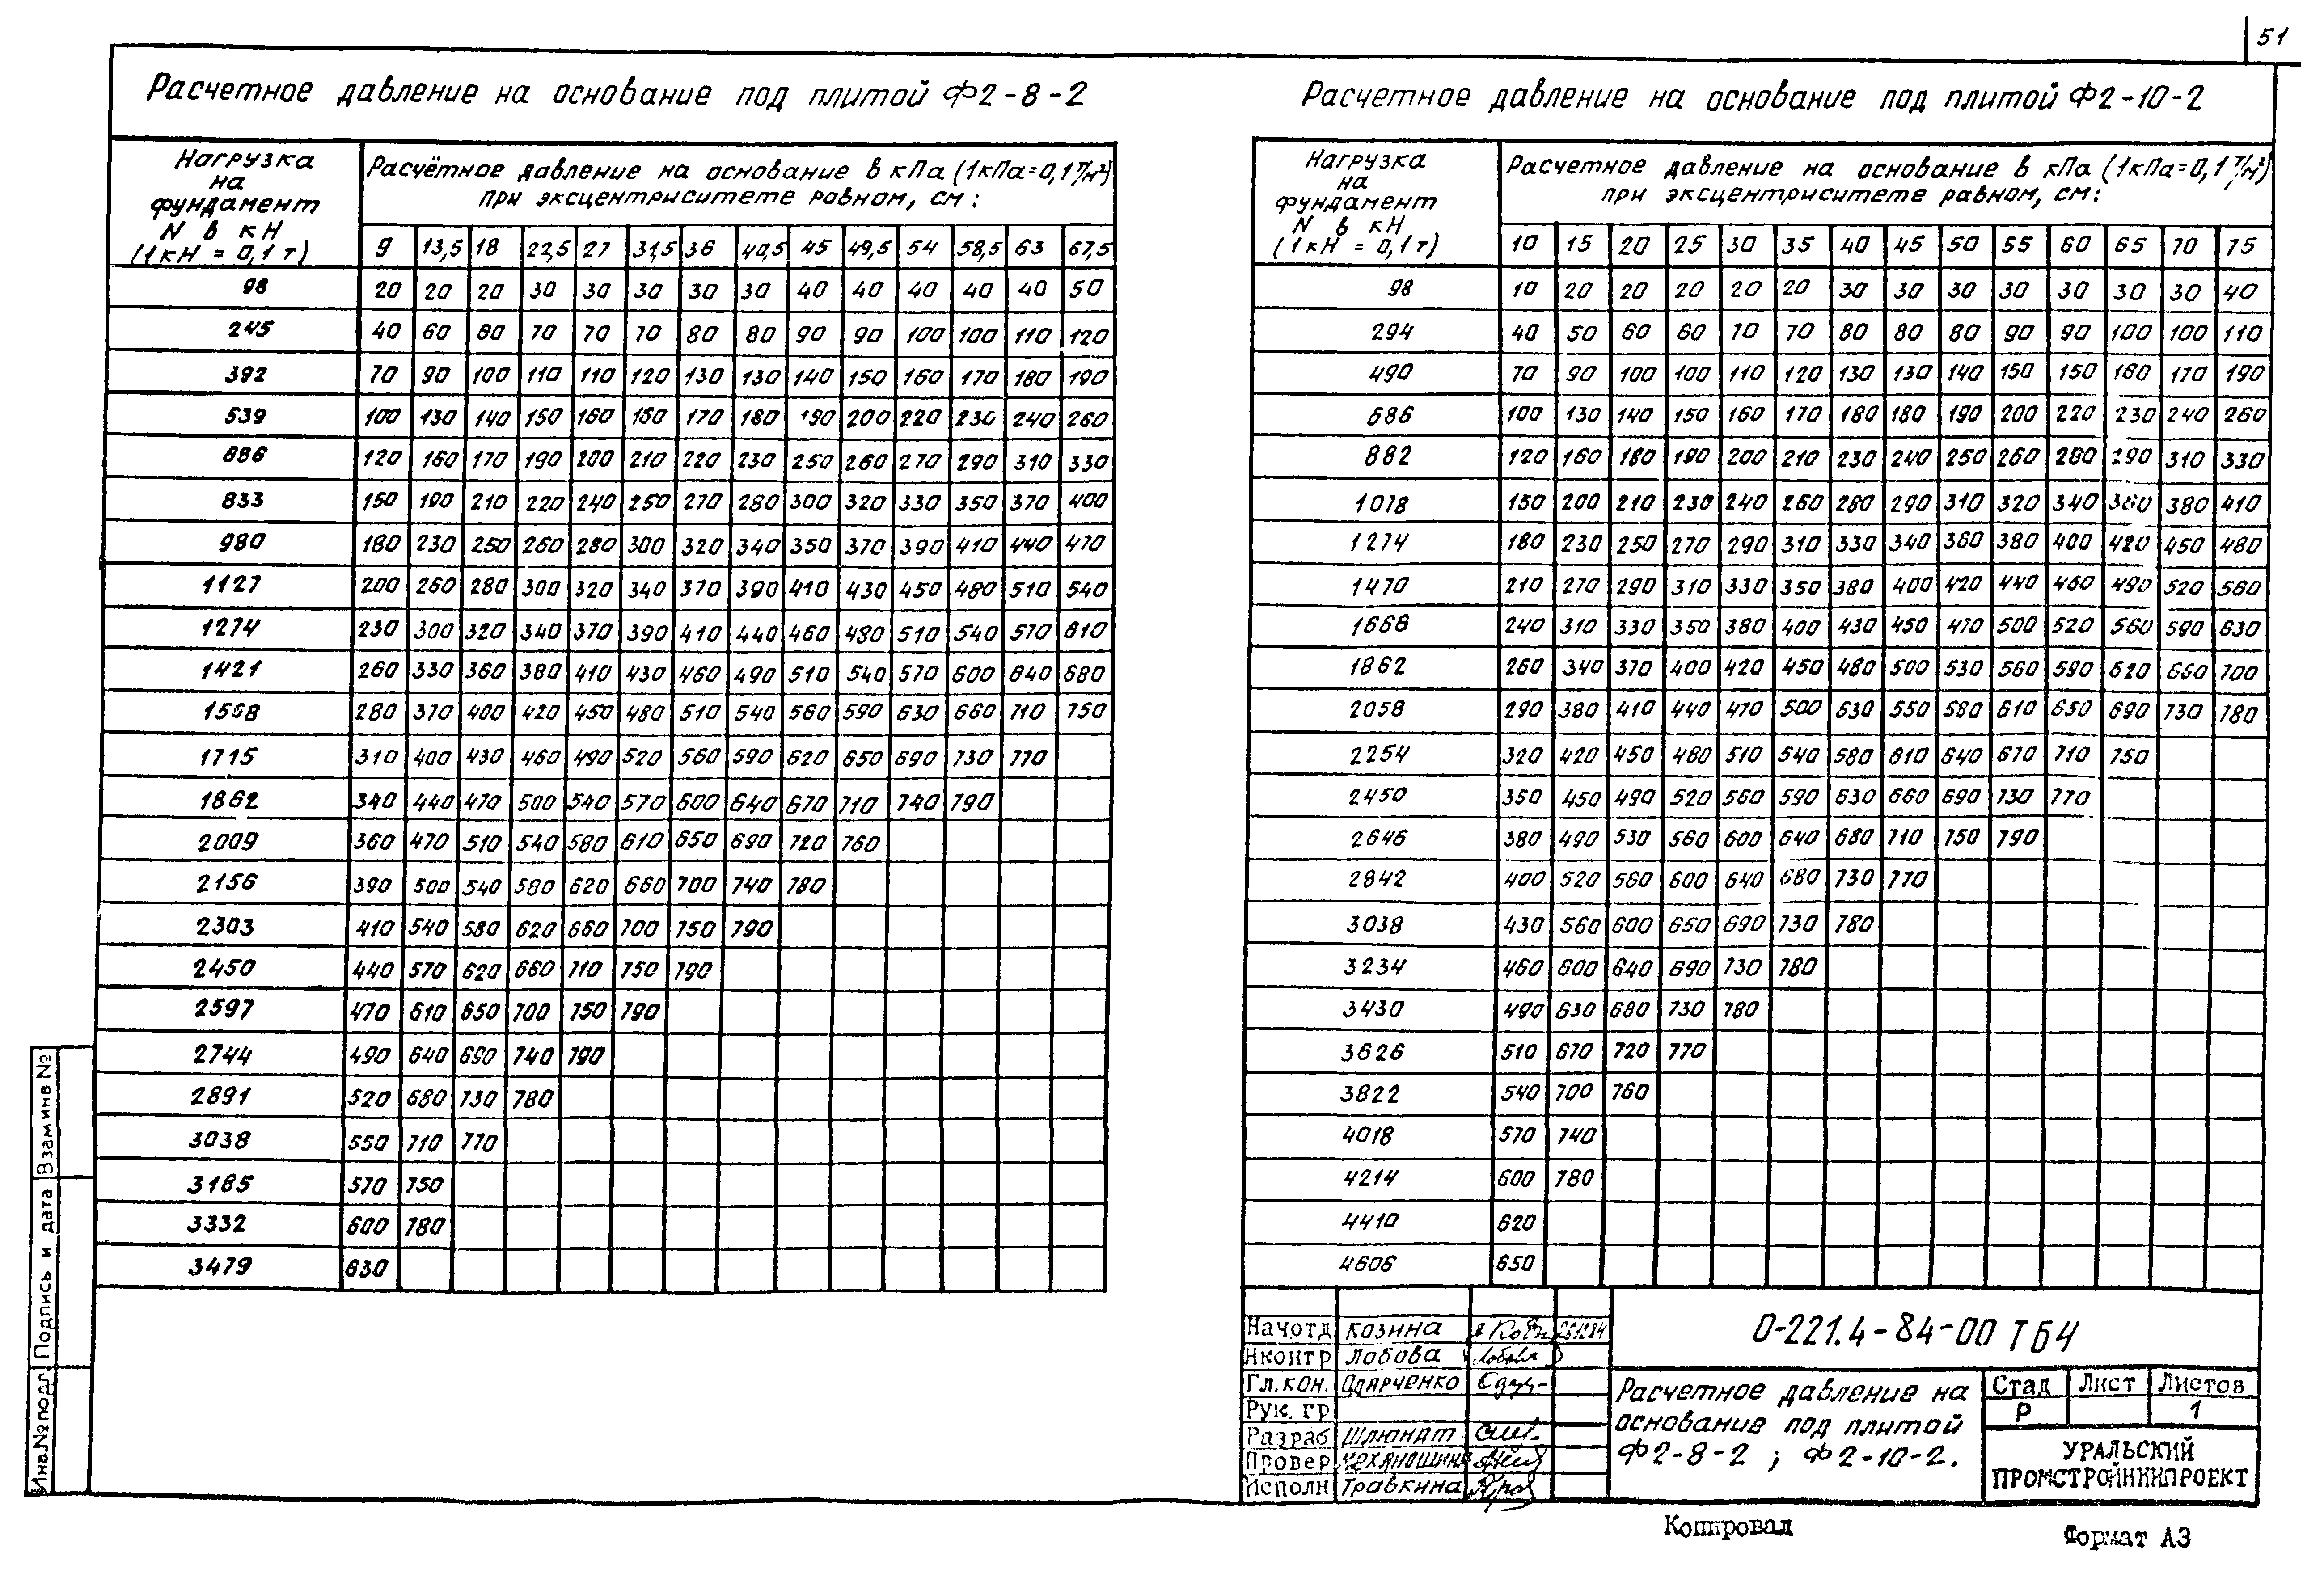 51
Расчетное давление на основание под плитой Ф2-8-2
Нагрузка на фундамент N в кН (1кН = 0,1т)
Расчётное давление на основание в кПа (1кПа=0,1т/м²) при эксцентриситете равном, см:
9 13,5 18 22,5 27 31,5 36 40,5 45 49,5 54 58,5 63 67,5
98 20 20 20 30 30 30 30 30 40 40 40 40 40 50
245 40 60 60 70 70 70 80 80 90 90 100 100 110 120
392 70 90 100 110 110 120 130 130 140 150 160 170 180 190
539 100 130 140 150 160 160 170 180 190 200 220 230 240 260
686 120 160 170 190 200 210 220 230 250 260 270 290 310 330
833 150 190 210 220 240 250 270 280 300 320 330 350 370 400
980 180 230 250 260 280 300 320 340 350 370 390 410 440 470
1127 200 260 280 300 320 340 370 390 410 430 450 480 510 540
1274 230 300 320 340 370 390 410 440 460 480 510 540 570 610
1421 260 330 360 380 410 430 460 490 510 540 570 600 640 680
1568 280 370 400 420 450 480 510 540 560 590 630 660 710 750
1715 310 400 430 460 490 520 560 590 620 650 690 730 770
1862 340 440 470 500 540 570 600 640 670 710 740 790
2009 360 470 510 540 580 610 650 690 720 760
2156 390 500 540 580 620 660 700 740 780
2303 410 540 580 620 660 700 750 790
2450 440 570 620 660 710 750 790
2597 470 610 650 700 750 790
2744 490 640 690 740 790
2891 520 680 730 780
3038 550 710 770
3185 570 750
3332 600 780
3479 630
Расчетное давление на основание под плитой Ф2-10-2
Нагрузка на фундамент N в кН (1кН = 0,1т)
Расчетное давление на основание в кПа (1кПа=0,1т/м²) при эксцентриситете равном, см:
10 15 20 25 30 35 40 45 50 55 60 65 70 75
98 10 20 20 20 20 20 30 30 30 30 30 30 30 40
294 40 50 60 60 70 70 80 80 80 90 90 100 100 110
490 70 90 100 100 110 120 130 130 140 150 150 160 170 190
686 100 130 140 150 160 170 180 180 190 200 220 230 240 260
882 120 160 180 190 200 210 230 240 250 260 280 290 310 330
1078 150 200 210 230 240 260 280 290 310 320 340 360 380 410
1274 180 230 250 270 290 310 330 340 360 380 400 420 450 480
1470 210 270 290 310 330 350 380 400 420 440 460 490 520 560
1666 240 310 330 350 380 400 430 450 470 500 520 560 590 630
1862 260 340 370 400 420 450 480 500 530 560 590 620 660 700
2058 290 380 410 440 470 500 530 550 580 610 650 690 730 780
2254 320 420 450 480 510 540 580 610 640 670 710 750
2450 350 450 490 520 560 590 630 660 690 730 770
2646 380 490 530 560 600 640 680 710 750 790
2842 400 520 560 600 640 680 730 770
3038 430 560 600 650 690 730 780
3234 460 600 640 690 730 780
3430 490 630 680 730 780
3626 510 670 720 770
3822 540 700 760
4018 570 740
4214 600 780
4410 620
4606 650
Начотд Козина
Нконтр Лобова
Гл.кон. Одярченко
Рук. гр
Разраб Шлюндт
Провер Механошина
Исполн Травкина
0-221.4-84-00 ТБ4
Расчетное давление на
основание под плитой
Ф2-8-2; Ф2-10-2.
Стад Лист Листов
Р 1
УРАЛЬСКИЙ
ПРОМСТРОЙНИИПРОЕКТ
Взаминв №
Подпись и дата
Инв.№подл.
Копировал
Формат А3